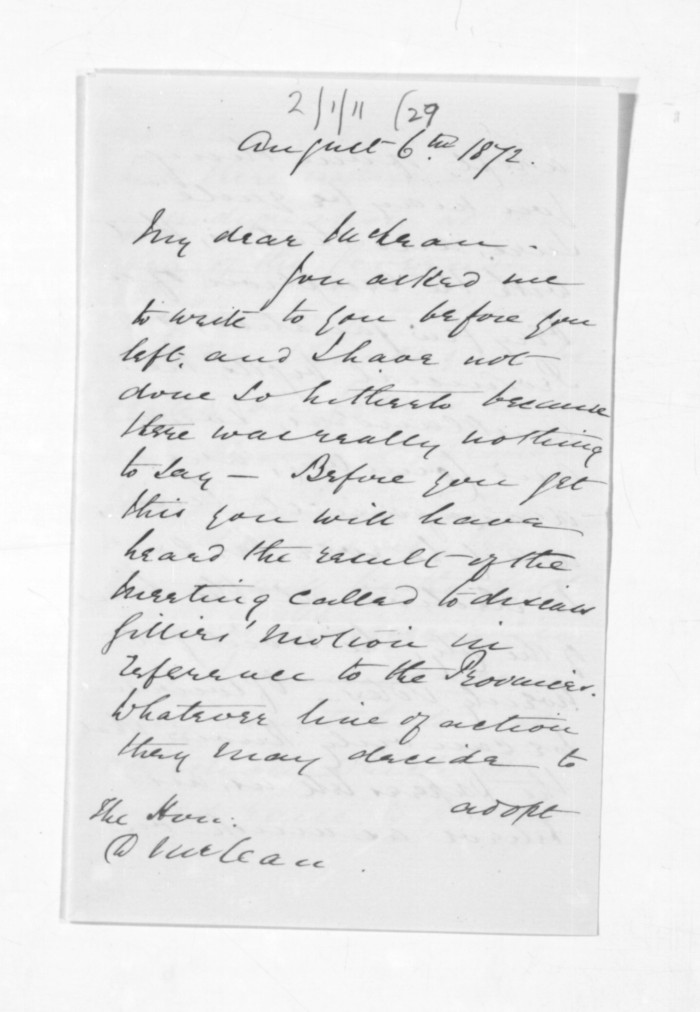 2/1/11 (29
August 6th. 1872.
My dear McLean.
You asked me
to write to you before you
left, and I have not
done so hitherto because
there was really nothing
to say — Before you get
this you will have
heard the result of the
meeting called to discuss
Gillies' motion in
reference to the Provinces.
Whatever line of action
they may decide to
adopt
The Hon:
D McLean